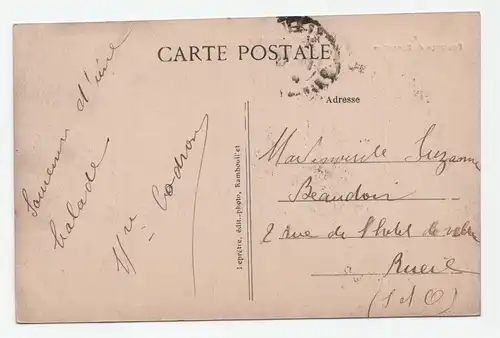 CARTE POSTALE
Adresse
Souvenir d'une
balade
Vve Codron
Leprêtre, édit.-photo, Rambouillet
Mademoiselle Suzanne
Beaudoin
2 rue de l'hotel de ville
Rueil
(S et O)